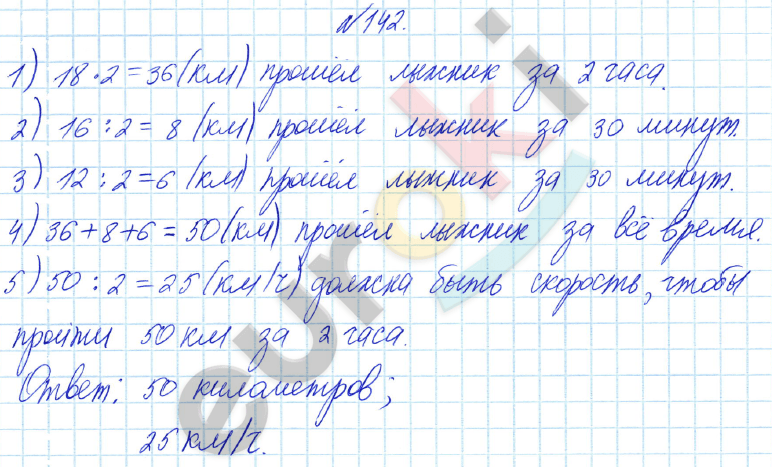 №142.
1) 18·2=36(км) прошёл лыжник за 2 часа.
2) 16:2=8 (км) прошёл лыжник за 30 минут.
3) 12:2=6 (км) прошёл лыжник за 30 минут.
4) 36+8+6=50(км) прошёл лыжник за всё время.
5) 50:2=25(км/ч) должна быть скорость, чтобы
пройти 50 км за 2 часа.
Ответ: 50 километров;
25 км/ч.
euroki